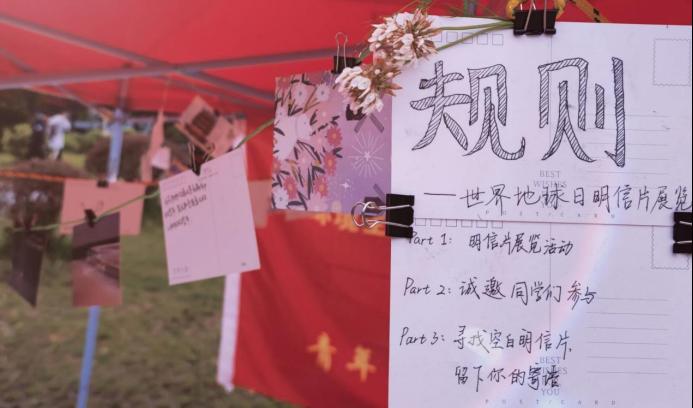 规则
BEST
WISHES
——世界地球日明信片展览
POST/CARD
Part 1: 明信片展览活动
Part 2: 诚邀同学们参与
Part 3: 寻找空白明信片,
留下你的寄语
BEST
YOU
POST/CARD
青年